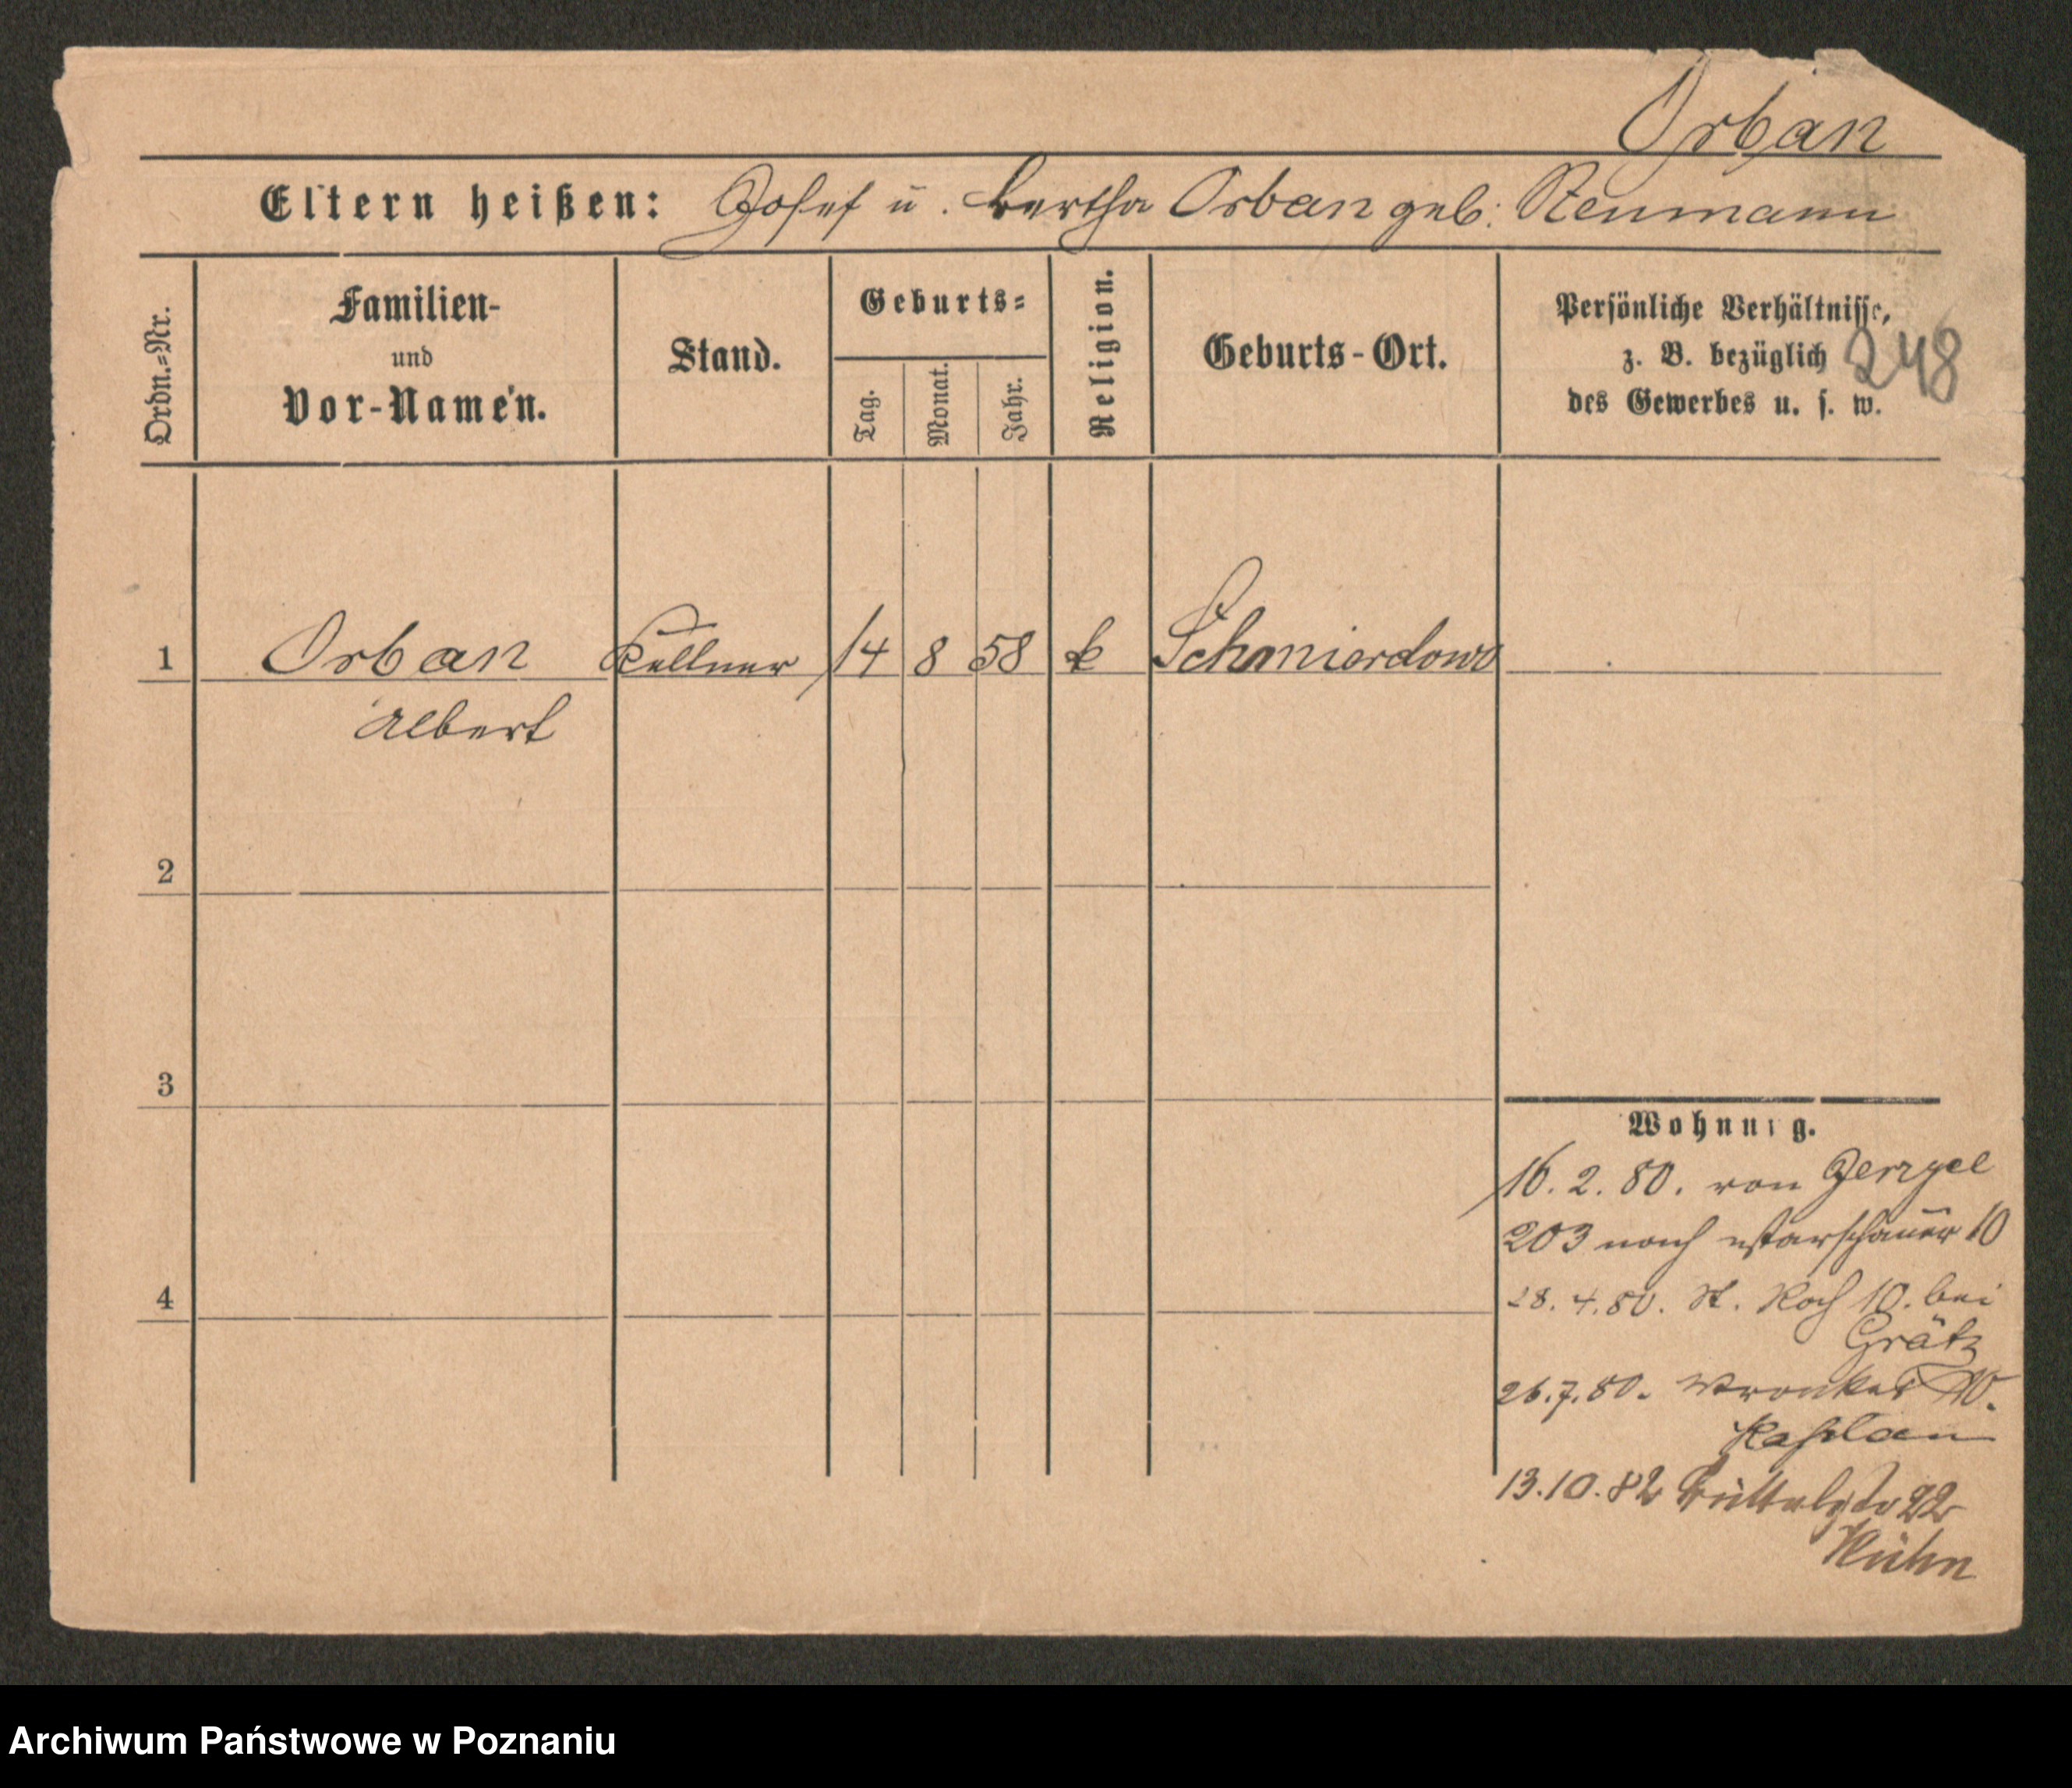 Orban
Eltern heißen: Josef u. Bertha Orban geb: Neumann
Ordn.=Nr.
Familien-
und
Vor-Namen.
Stand.
Geburts=
Tag.
Monat.
Jahr.
Religion.
Geburts-Ort.
Persönliche Verhältnisse,
z. B. bezüglich
des Gewerbes u. s. w.
248
1 Orban Kellner 14 8 58 k Schmierdowo
Albert
2
3
4
Wohnung.
16. 2. 80. von
203 nach 10
28. 4. 80. St. Roch 10. bei
Grätz
26. 7. 80. Wronker 10.
Kaplan
13. 10. 82 22
Kühn
Archiwum Państwowe w Poznaniu